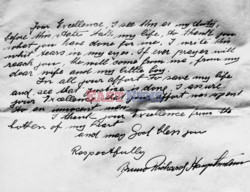 Your Excellence, I see this as my duty,
before this State takes my life, to thank you
what you have done for me. I write this
with tears in my eyes. If ever prayer will
reach you, they will come from me, from my
dear wife and my little boy
In all your effort to save my life
and see that justice is done, I assure
your Excellence that your effort was spent
to an innocent man
I thank your Excellence from the
bottom of my heart
and may God bless you
Respectfully
Bruno Richard Hauptmann